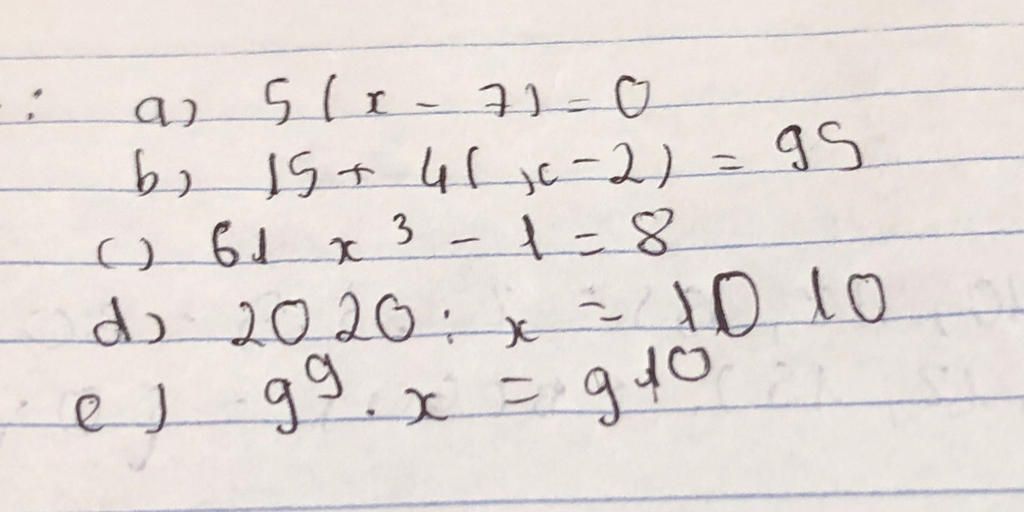 : a) 5(x - 7) = 0
b) 15 + 4(x - 2) = 95
c) 61 x³ - 1 = 8
d) 2020 : x = 1010
e) 9⁹ . x = 9¹⁰